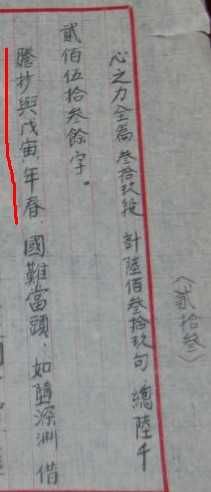 〈貳拾叁〉
心之力全篇叁拾玖段 計陸佰叁拾玖句 總陸千
貳佰伍拾叁餘字。
謄抄與戊寅年春 國難當頭，如墮深淵 借